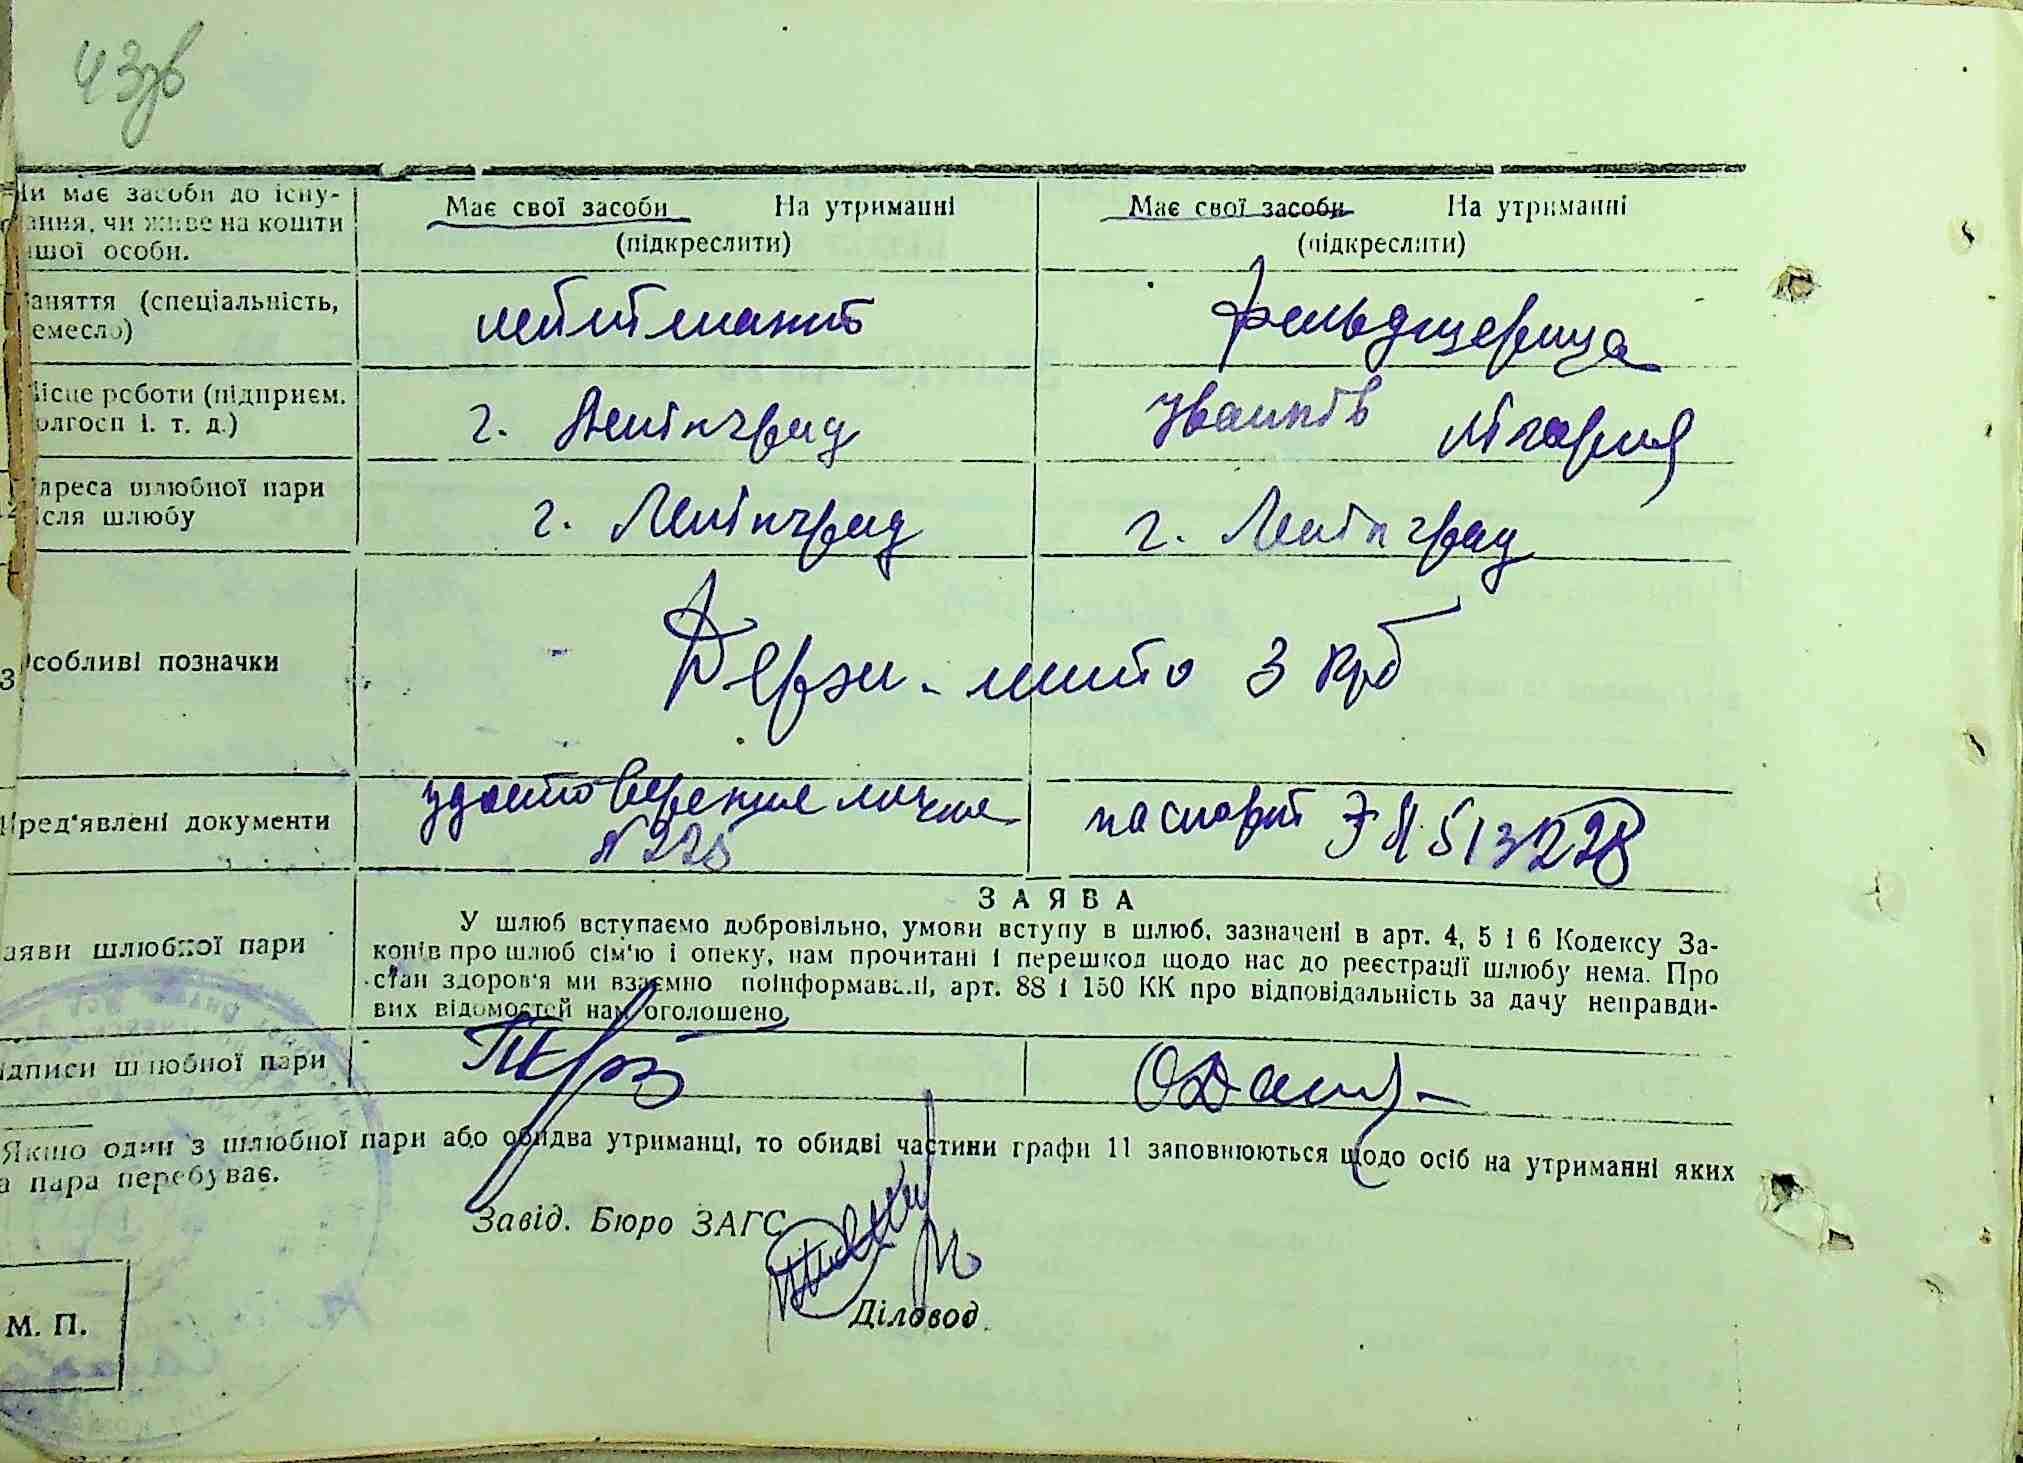 43зв
Чи має засоби до існу-
вання, чи живе на кошти
іншої особи.
Має свої засоби На утриманні
(підкреслити)
Має свої засоби На утриманні
(підкреслити)
Заняття (спеціальність,
ремесло)
лейтенант
фельдшерица
Місце роботи (підприєм.
колгосп і. т. д.)
г. Ленінград
Іванків лікарня
Адреса шлюбної пари
після шлюбу
г. Ленінград
г. Ленінград
3 Особливі позначки
Держ. мито 3 крб
Пред'явлені документи
удостоверение личне
№ 225
паспорт ЭЯ 513228
Заяви шлюбної пари
ЗАЯВА
У шлюб вступаємо добровільно, умови вступу в шлюб, зазначені в арт. 4, 5 і 6 Кодексу За-
конів про шлюб сім'ю і опеку, нам прочитані і перешкод щодо нас до реєстрації шлюбу нема. Про
стан здоров'я ми взаємно поінформавані, арт. 88 і 150 КК про відповідальність за дачу неправди-
вих відомостей нам оголошено
Підписи шлюбної пари
Якщо один з шлюбної пари або обидва утриманці, то обидві частини графи 11 заповнюються щодо осіб на утриманні яких
ця пара перебуває.
Завід. Бюро ЗАГС
Діловод.
М. П.